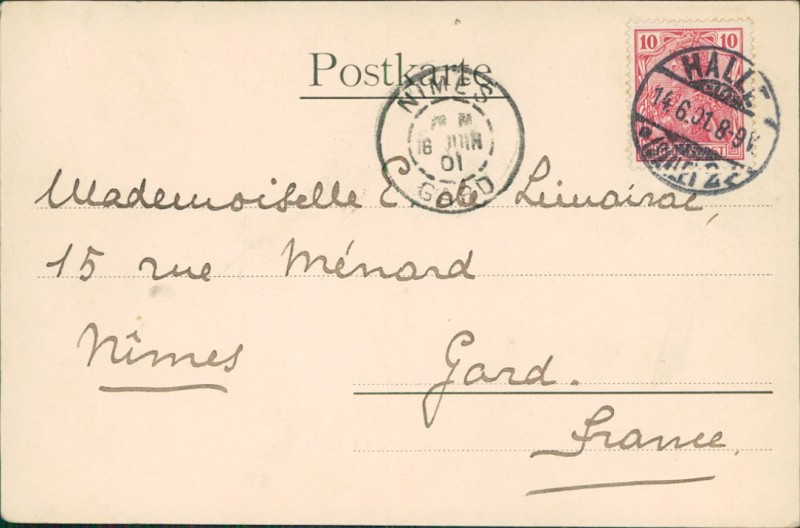 10 10
Postkarte
HALLE
14.6.01.8-9V.
NIMES
16 JUIN
01
GARD
Mademoiselle
15 rue Ménard
Nîmes Gard.
France.